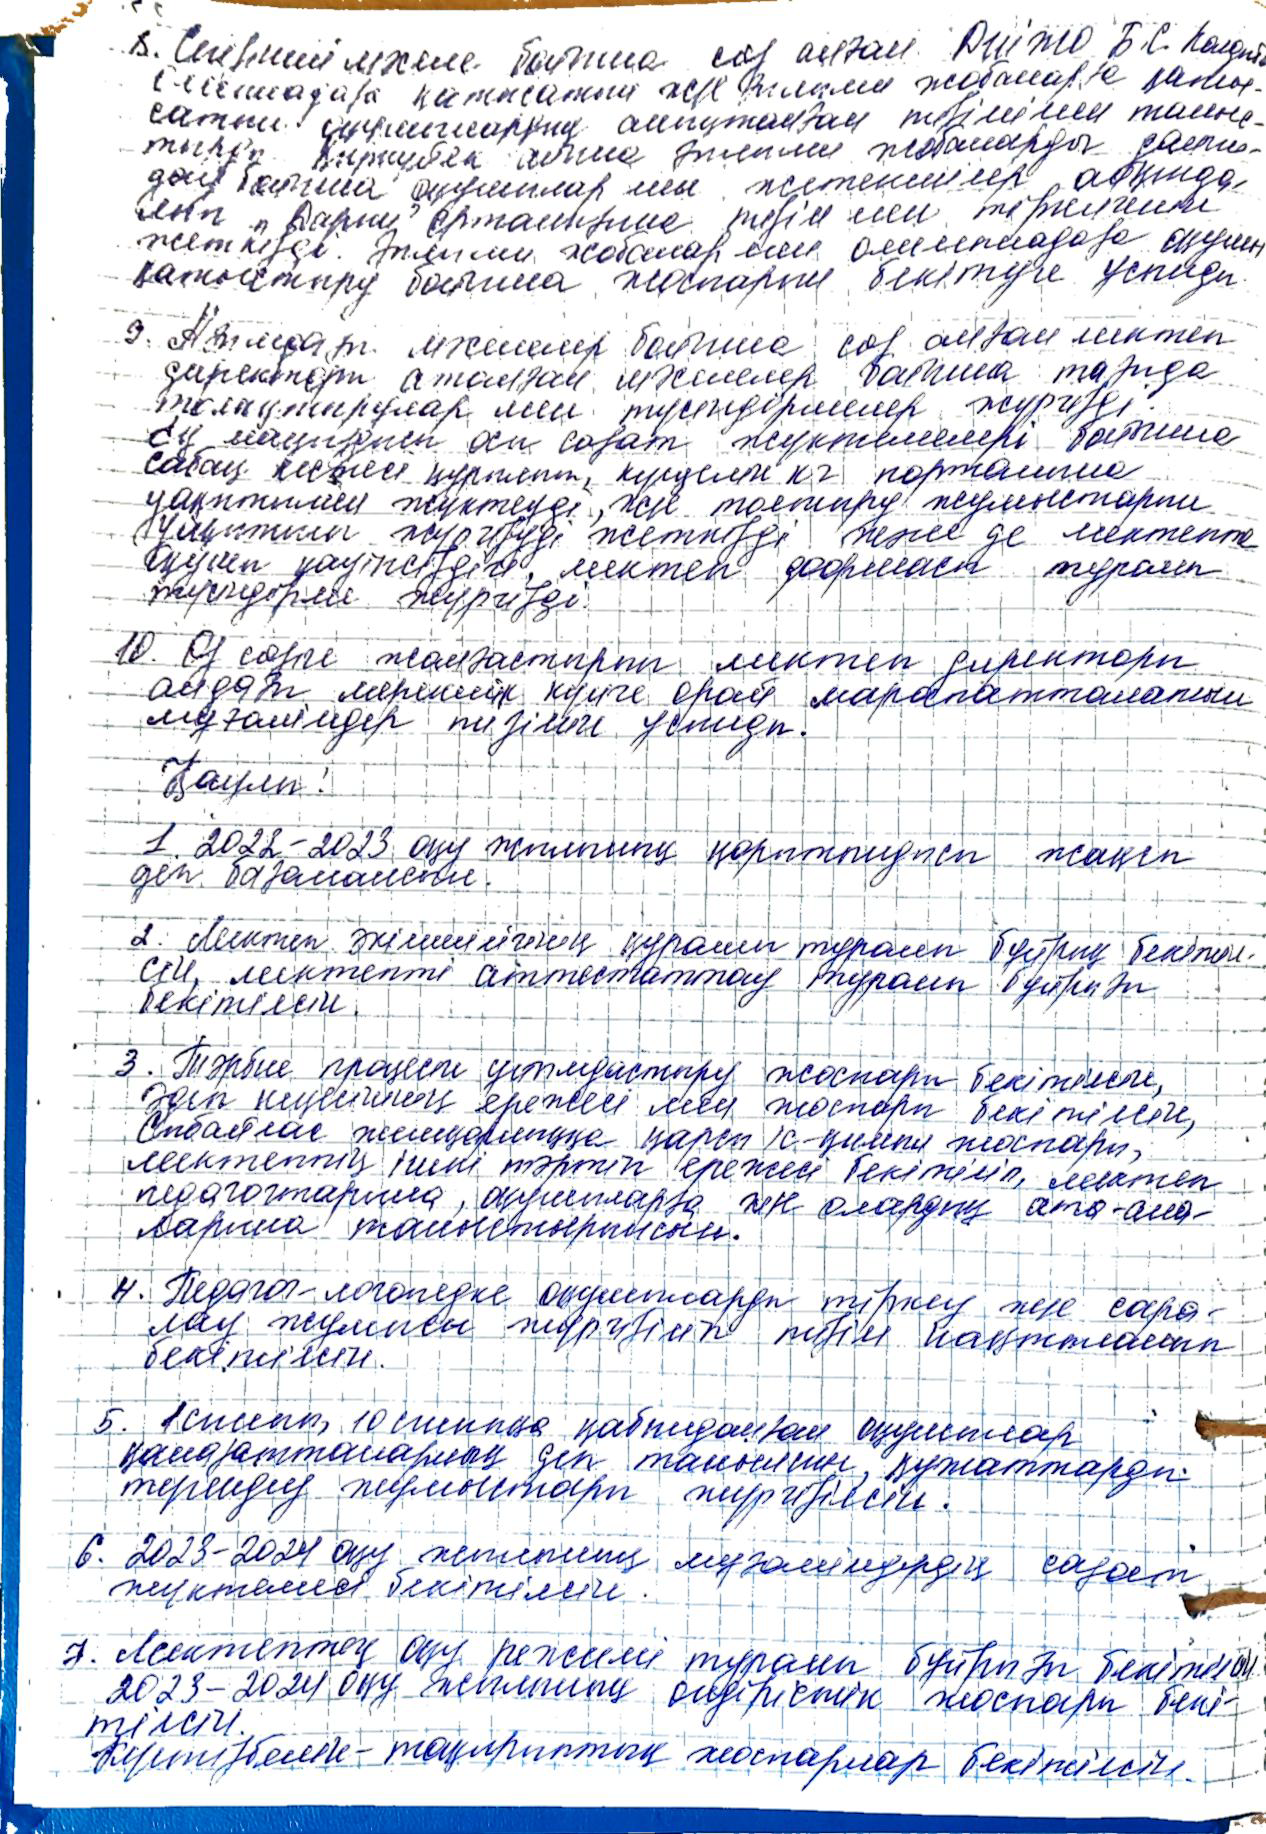 8. Сегізінші мәселе бойынша сөз алған ДОІЖО Б.С.
Олимпиадаға қатысатын және ғылыми жобаларға қаты-
сатын оқушылардың анықталған тізімімен таныс-
тырды. ғылыми жобаларды
бойынша оқушылар мен жетекшілер
"Дарын" орталығына тізім мен
жеткізді. Ғылыми жобалар мен олимпиадаға оқушы
қатыстыру бойынша жоспарын бекітуге ұсынды.
9. Ағымдағы мәселелер бойынша сөз алған мектеп
директоры аталған мәселелер бойынша тағы да
толықтырулар мен түсіндірмелер жүргізді.
Оқу осы сағат жүктемелері бойынша
сабақ кестесі құрылып, күнделік кз порталына
уақытылы жүктеуді, және толтыру жұмыстарын
уақытылы жүргізуді жеткізді және де мектепте
оқушы қауіпсіздігі, мектеп формасы туралы
түсіндірме жүргізді.
10. Өз сөзін жалғастырып мектеп директоры
алдағы мерекелік күнге орай марапатталатын
мұғалімдер тізімін ұсынды.
Қаулы:
1. 2022-2023 оқу жылының қорытындысы жақсы
деп бағалансын.
2. Мектеп әкімшілігінің құрамы туралы бұйрық бекітіл-
сін, мектепті аттестаттау туралы бұйрығы
бекітілсін.
3. Тәрбие процесін ұйымдастыру жоспары бекітілсін,
Әдеп кеңесінің ережесі мен жоспары бекітілсін,
Сыбайлас жемқорлыққа қарсы іс-қимыл жоспары,
мектептің ішкі тәртіп ережесі бекітіліп, мектеп
педагогтарына, оқушыларға және олардың ата-ана-
ларына таныстырылсын.
4. Педагог-логопедке оқушыларды тіркеу және сара-
лау жұмысы жүргізіліп тізім нақтыланып
бекітілсін.
5. 1 сынып, 10 сыныпқа қабылданған оқушылар
қанағаттанарлық деп танылсын, құжаттарды
түгендеу жұмыстары жүргізілсін.
6. 2023-2024 оқу жылының мұғалімдердің сағат
жүктемесі бекітілсін.
7. Мектептің оқу режимі туралы бұйрығы бекітілсін.
2023-2024 оқу жылының өндірістік жоспары бекі-
тілсін.
Күнтізбелік-тақырыптық жоспарлар бекітілсін.